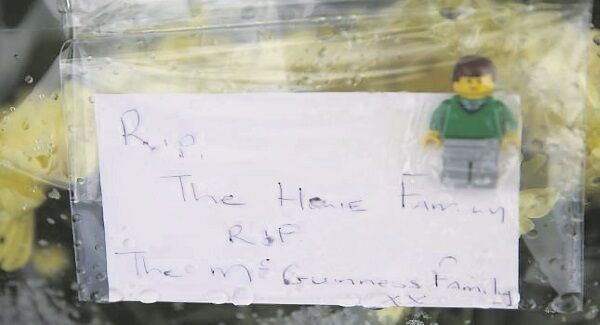 R.I.P.
The Hawe Family
R.I.P
The Mc Guinness Family
xx